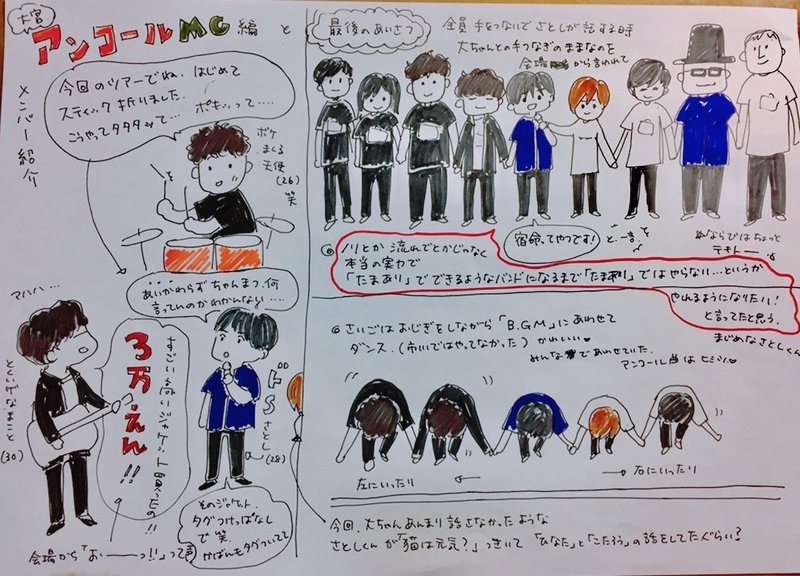 大宮
アンコールMC編 と
メンバー紹介
今回のツアーでね、はじめて
スティック折りました.
こうやってタタタッて… ポキッって….
ボケ
まくる
天使
(26)
笑
あいかわらずちゃんまつ、何
言っているのかわかんない….
アハハ…
すごい高いジャケット買ったの!!
3万えん!!
といいゲなまこと
(30)
ドSさとし
(28)
そのジャケット、
タグつけっぱなし
で笑
かばんもタグついてて
会場から「おぃーーっ!!」って声
最後のあいさつ
全員 手をつないでさとしが話す時
大ちゃんとの手つなぎのままなのを
会場から言われて
宿命ってやつです!
と.一言.
ならびはちょっと
テキトー
◎ ノリとか 流れでとかじゃなく
本当の実力で
「たまあり」でできるようなバンドになるまで「たまあり」ではやらない…というか
やれるようになりたい!
と言ってたと思う.
まじめなさとしくん
◎ さいごはおじぎをしながら「B.G.M」にあわせて
ダンス. (市川ではやってなかった) かわいい♡
みんなであわせていた.
アンコール曲はヒミツ♡
左にいったり ←
→ 右にいったり
今回、大ちゃんあんまり話さなかったような
さとしくんが「猫は元気?」っきいて「ひなた」と「こたろう」の話をしてたぐらい?